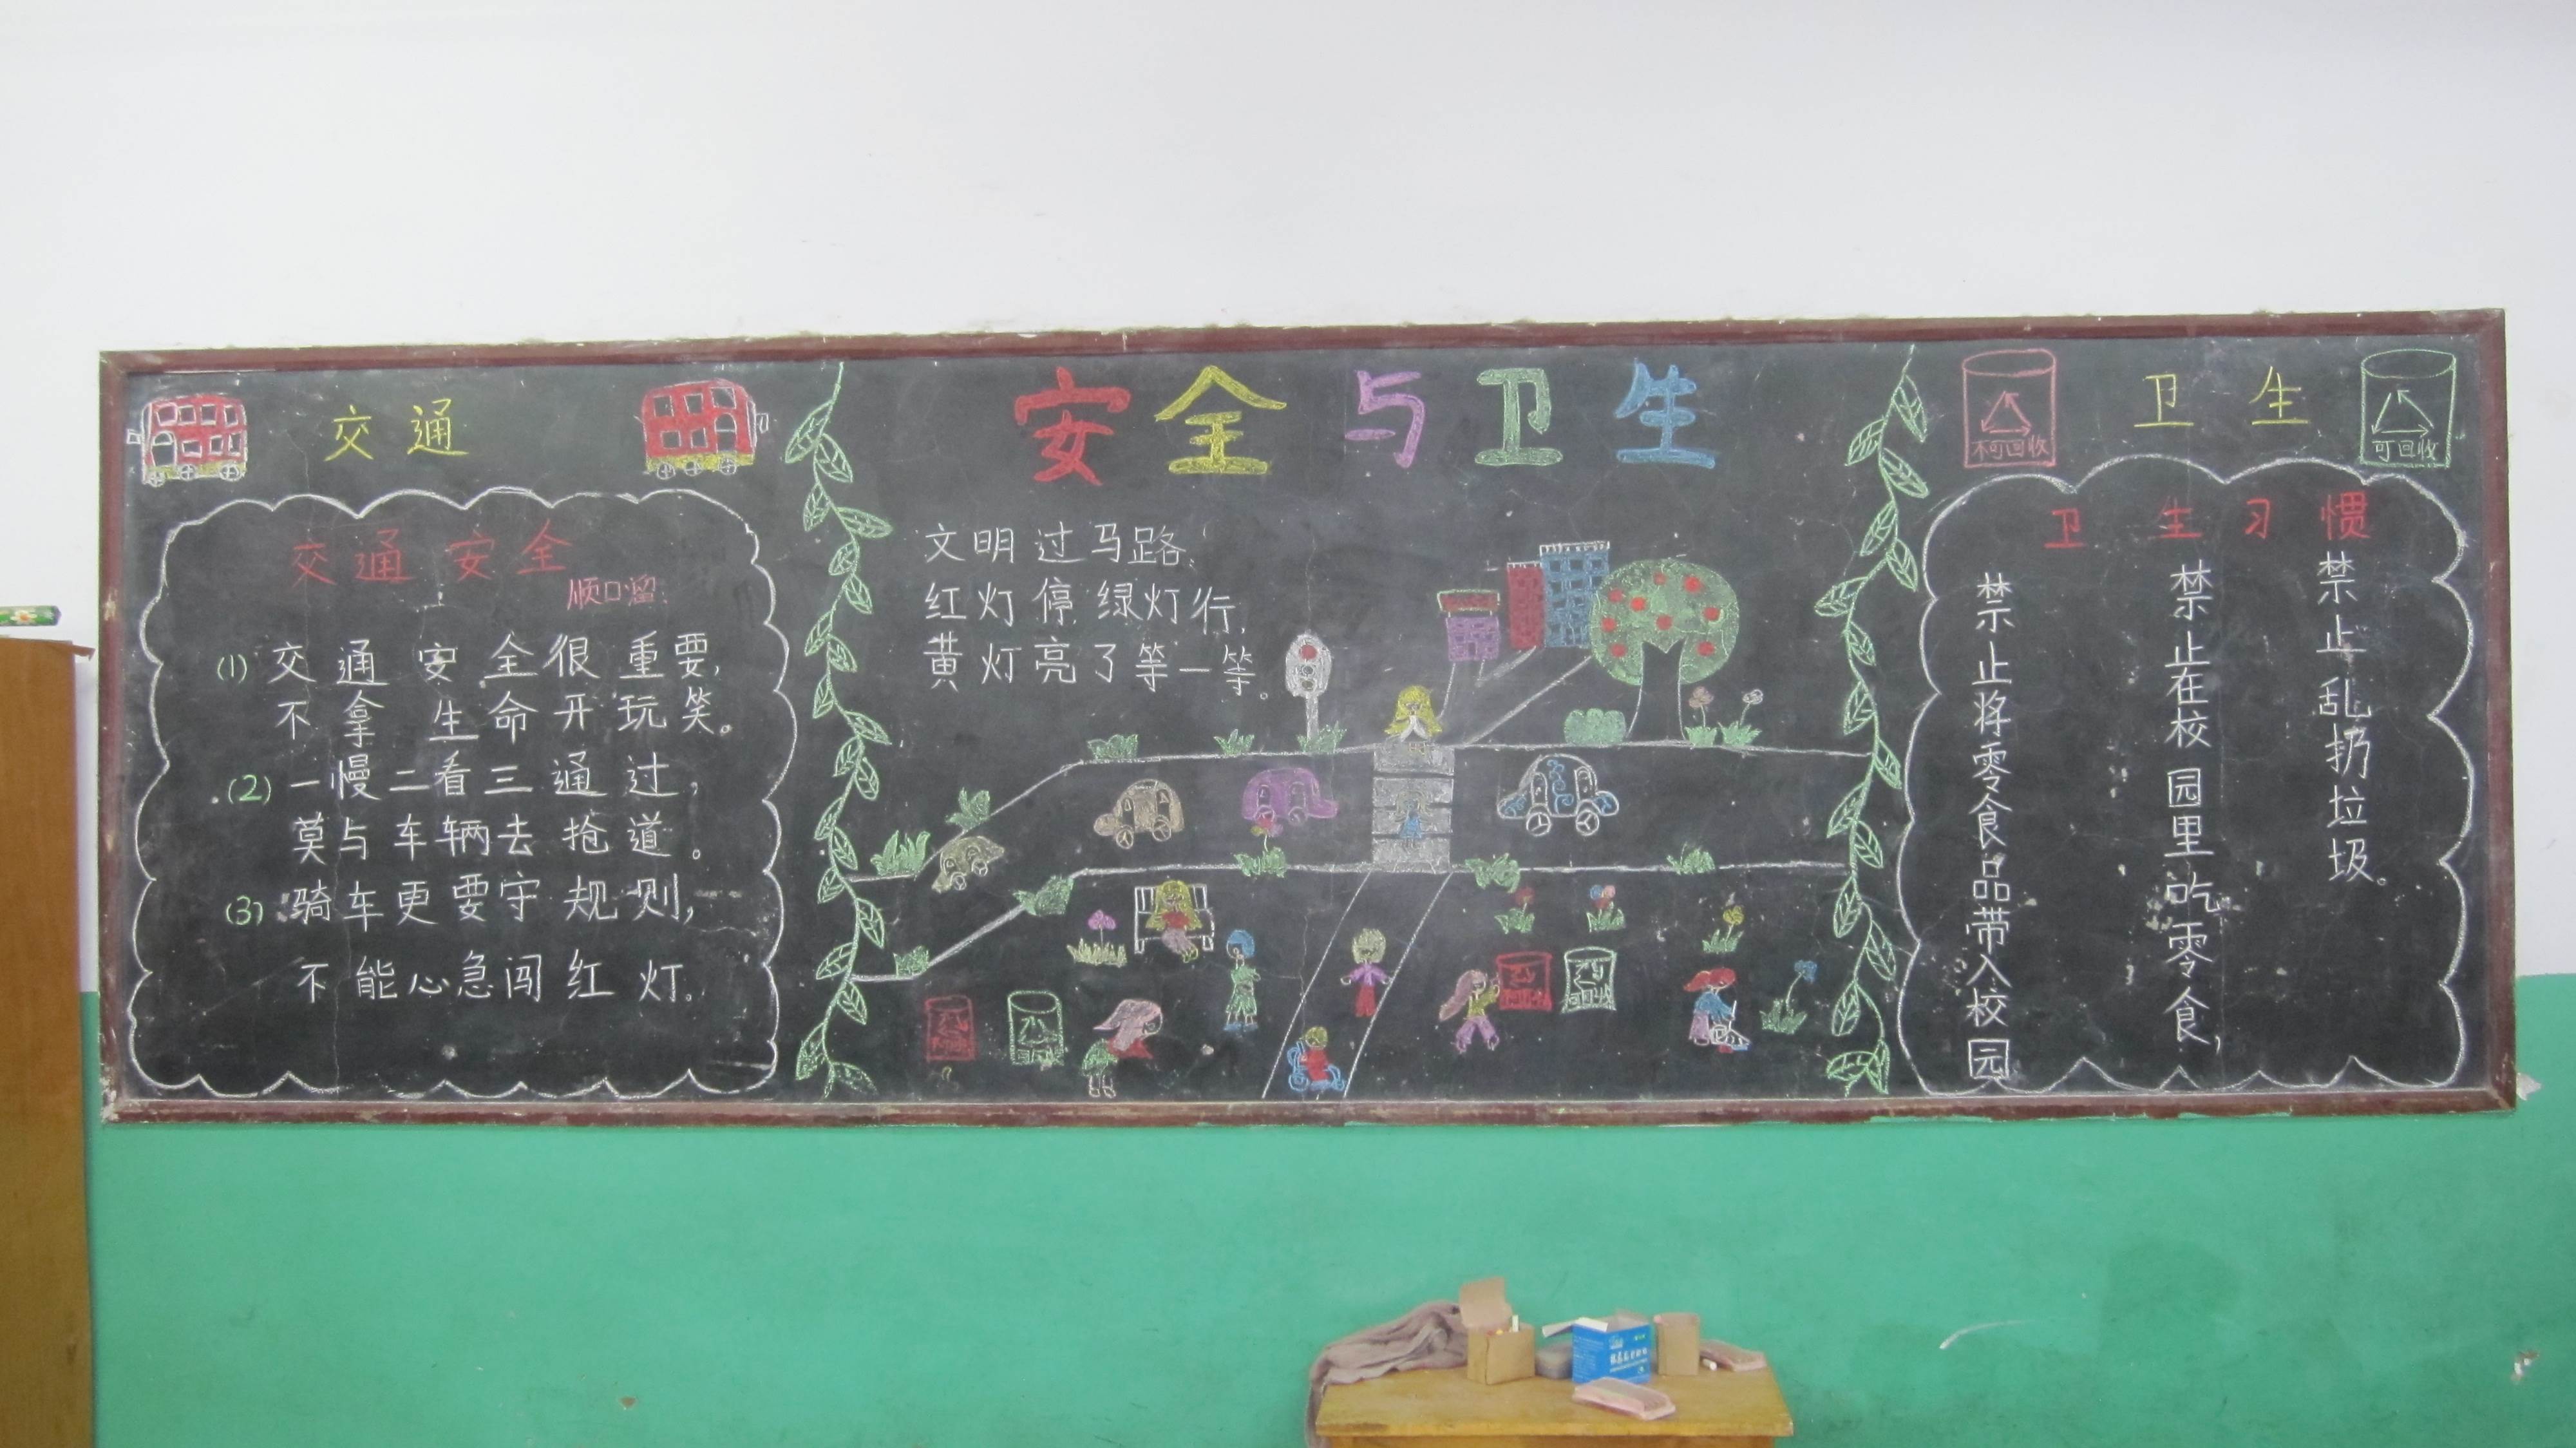 安全与卫生
交通
交通安全
顺口溜
(1) 交通安全很重要,
不拿生命开玩笑。
(2) 一慢二看三通过,
莫与车辆去抢道。
(3) 骑车更要守规则,
不能心急闯红灯。
文明过马路,
红灯停,绿灯行,
黄灯亮了等一等。
不可回收
卫生
可回收
卫生习惯
禁止乱扔垃圾。
禁止在校园里吃零食,
禁止将零食品带入校园